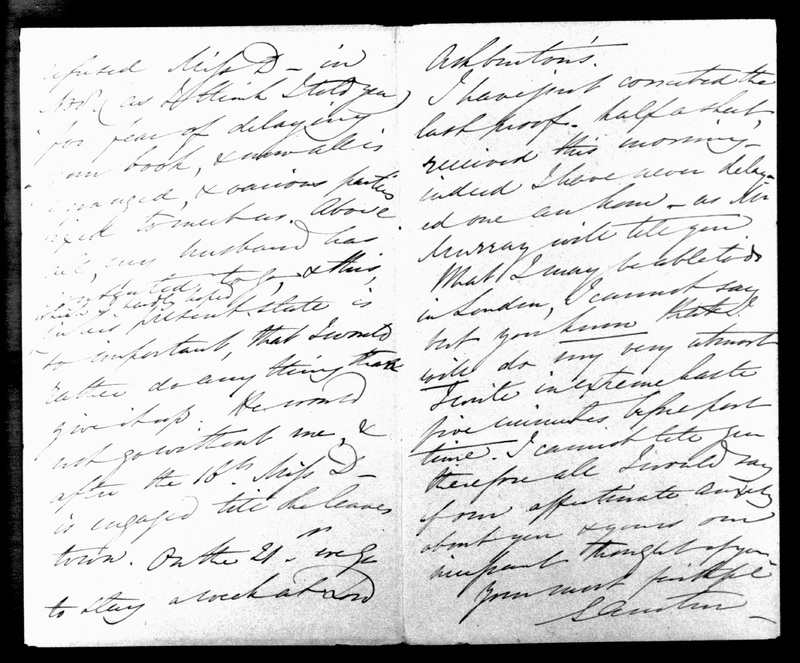 refused Miss D – in
Nov. (as I think I told you)
for fear of delaying
your book, & now all is
arranged, & various parties
fixed to meet us. Above
all, my husband has
consented to go, & this,
which I hardly hoped
in his present state is
so important, that I would
rather do anything than
give it up. He would
not go without me, &
after the 18th Miss D –
is engaged till she leaves
town. On the 21st we go
to stay a week at Lord
Ashburton's.
I have just corrected the
last proof. half a sheet,
received this morning –
indeed I have never delay-
ed one an hour – as Mr
Murray will tell you
What I may be able to do
in London, I cannot say
but you know that I
will do my very utmost
I write in extreme haste
five minutes before post
time. I cannot tell you
therefore all I would say
of our affectionate anxiety
about you & yours our
incessant thought of you
Your most faithful
S Austin